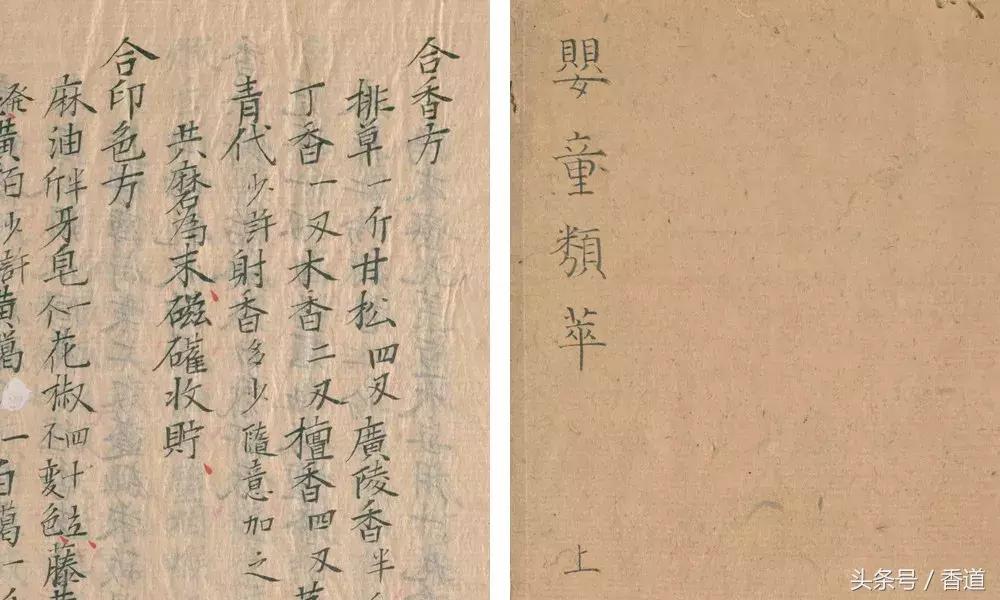 嬰童類萃
上
合香方
排草一斤甘松四刄廣陵香半
丁香一刄木香二刄檀香四刄
青代少許射香多少隨意加之
共磨為末磁礶收貯
合印色方
麻油半斤牙皂一个花椒四十粒不變色藤
少許黄蠟一白蠟一
头条号 / 香道